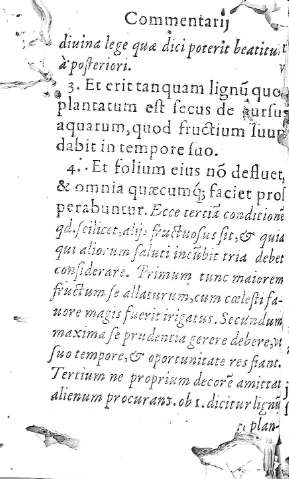 Commentarij
diuina lege quæ dici poterit beatitu
à posteriori.
3. Et erit tanquam lignũ quo
plantatum est secus de cursu
aquarum, quod fructium suum
dabit in tempore suo.
4. Et folium eius nõ defluet,
& omnia quæcumq; faciet pros
perabuntur. Ecce tertiã conditionẽ
qd. scilicet, alijs fructuosus sit, & quia
qui aliorum saluti incũbit tria debet
considerare. Primum tunc maiorem
fructum se allaturum, cum cœlesti fa-
uore magis fuerit irigatus. Secundum
maxima se prudentia gerere debere, vt
suo tempore, & oportunitate res fiant.
Tertium ne proprium decorẽ amittat
alienum procurans. ob 1. dicitur lignũ
plan-